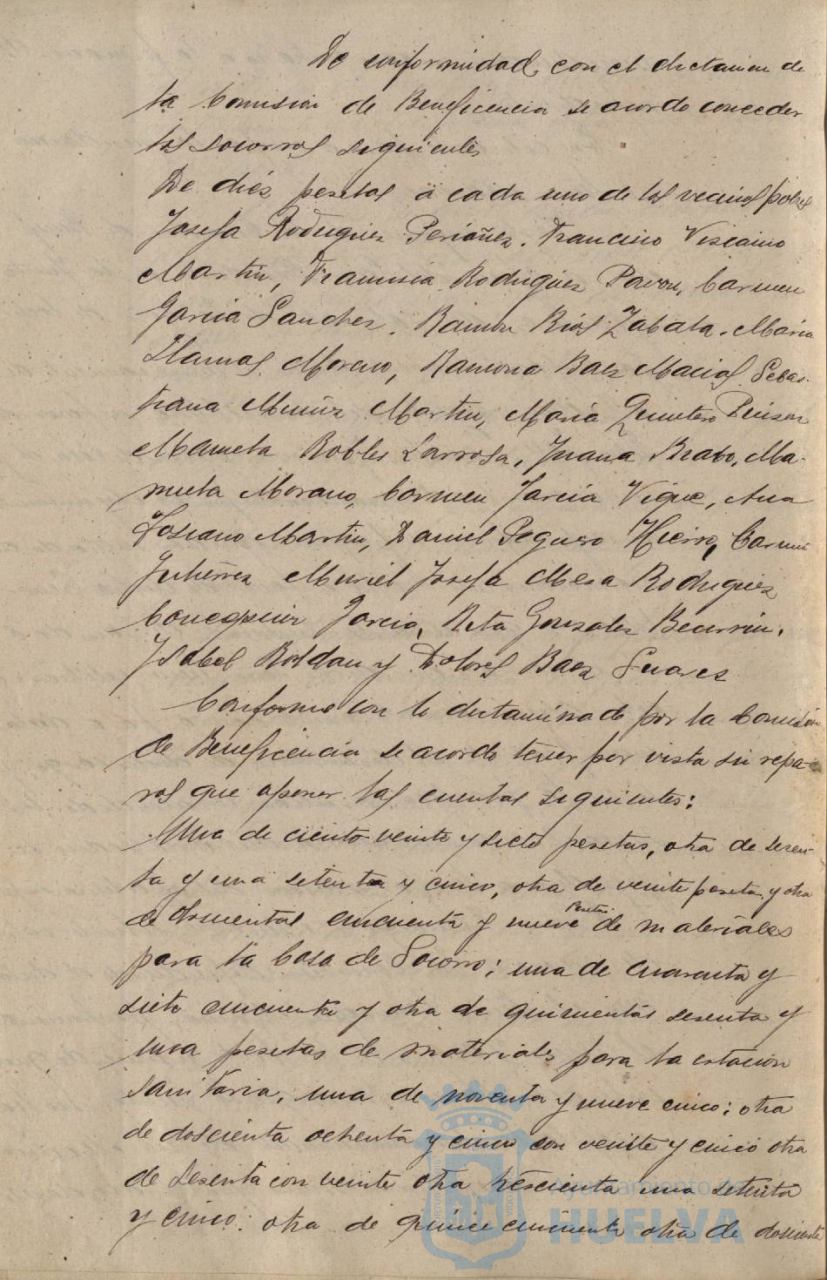 De conformidad, con el dictamen de
la Comision de Beneficencia se acordo conceder
los socorros siguientes
De diés pesetas á cada uno de los vecinos pobres
Josefa Rodriguez Periañez. Francisco Viscaino
Martin, Francisca Rodriguez Pavon, Carmen
Garcia Sanchez. Ramon Rios Zabala. Maria
Llamas Moreno, Ramona Baez Macias Sebas-
tiana Muñiz Martin, Maria Quintero
Manuela Robles Larrosa, Juana Brabo, Ma-
nuela Morano, Carmen Garcia Vique, Ana
Toscano Martin, Daniel Peguero Hierro, Carmen
Gutierrez Muriel Josefa Mesa Rodriguez
Concepcion Garcia, Rita Gonzalez Becerrin.
Ysabel Roldan y Dolores Baez Suarez
Conforme con lo dictaminado por la Comision
de Beneficencia se acordo tener por vista sin repa-
ros que oponer las cuentas siguientes:
Una de ciento veinte y siete pesetas, otra de sesen-
ta y una setenta y cinco, otra de veinte pesetas y otra
de doscientas cincuenta y nueve pesetas de materiales
para la Casa de Socorro; una de cuarenta y
siete cincuenta y otra de quinientas sesenta y
una pesetas de materiales para la estacion
sanitaria, una de noventa y nueve cinco; otra
de doscienta ochenta y cinco con veinte y cinco otra
de sesenta con veinte otra trescienta una setenta
y cinco. otra de quince cincuenta otra de doscienta
Ayuntamiento de
HUELVA